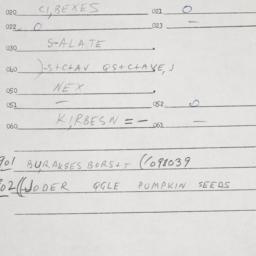 020 CI,BEXES 021 0
022 0 023 —
030 S-ALATE
060 )-S+C+AV QS+C+AVE,S
050 NEX
051 — 052 0
060 KIRBESN = - 061 —
901 BURAKSESBORS+T (1098039
02 ((JODER GGLE PUMPKIN SEEDS